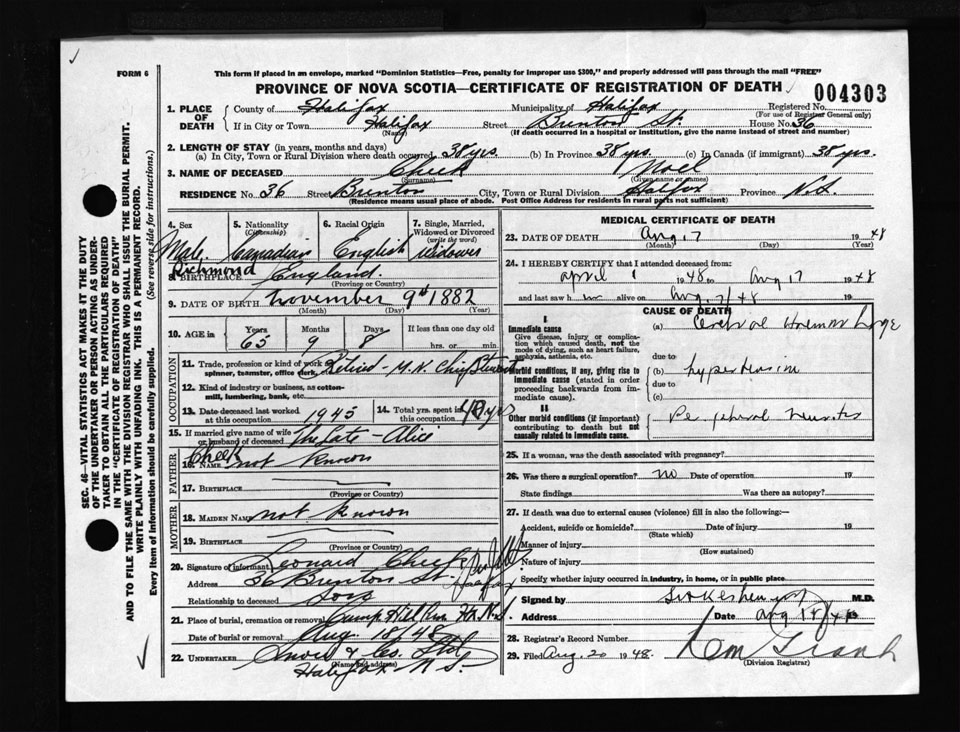 FORM 6
This form if placed in an envelope, marked "Dominion Statistics—Free, penalty for improper use $300," and properly addressed will pass through the mail "FREE"
PROVINCE OF NOVA SCOTIA—CERTIFICATE OF REGISTRATION OF DEATH
004303
1. PLACE OF DEATH County of Halifax Municipality of Halifax Registered No. (For use of Registrar General only)
If in City or Town Halifax (Name) Street Brenton St. House No. 36
(If death occurred in a hospital or institution, give the name instead of street and number)
2. LENGTH OF STAY (in years, months and days)
(a) In City, Town or Rural Division where death occurred 38 yrs. (b) In Province 38 yrs. (c) In Canada (if immigrant) 38 yrs.
3. NAME OF DECEASED Cheek (Surname) Noel (Given name or names)
RESIDENCE No. 36 Street Brenton City, Town or Rural Division Halifax Province N.S.
(Residence means usual place of abode. Post Office Address for residents in rural parts not sufficient)
4. Sex 5. Nationality (Citizenship) 6. Racial Origin 7. Single, Married, Widowed or Divorced (write the word)
Male. Canadian English Widower
8. BIRTHPLACE Richmond England.
(Province or Country)
9. DATE OF BIRTH November 9th 1882
(Month) (Day) (Year)
10. AGE in Years Months Days If less than one day old
65 9 8 hrs. or min.
OCCUPATION
11. Trade, profession or kind of work as spinner, teamster, office clerk, Retired - M.N. Chief Steward
12. Kind of industry or business, as cotton-mill, lumbering, bank, etc.
13. Date deceased last worked at this occupation 1945 14. Total yrs. spent in this occupation 40 yrs
15. If married give name of wife or husband of deceased The Late - Alice Cheek
FATHER
16. Name not known
17. Birthplace
(Province or Country)
MOTHER
18. Maiden Name not known
19. Birthplace
(Province or Country)
20. Signature of informant Leonard Cheek
Address 36 Brenton St. Halifax
Relationship to deceased Son
21. Place of burial, cremation or removal Camp Hill Hx. N.S
Date of burial or removal Aug. 18/48
22. UNDERTAKER Snow & Co. Ltd
(Name and address)
Halifax N.S.
MEDICAL CERTIFICATE OF DEATH
23. DATE OF DEATH Aug 17 1948
(Month) (Day) (Year)
24. I HEREBY CERTIFY that I attended deceased from:
April 1 1948 to Aug 17 1948
and last saw him alive on Aug. 17/48 19
CAUSE OF DEATH
I.
Immediate cause
Give disease, injury or complication which caused death, not the mode of dying, such as heart failure, asphyxia, asthenia, etc.
(a) Cerebral Haemorrhage
due to
Morbid conditions, if any, giving rise to immediate cause (stated in order proceeding backwards from immediate cause).
(b) hypertension
due to
(c)
II
Other morbid conditions (if important) contributing to death but not causally related to immediate cause.
Peripheral neuritis
25. If a woman, was the death associated with pregnancy?
26. Was there a surgical operation? no Date of operation 19
State findings Was there an autopsy?
27. If death was due to external causes (violence) fill in also the following:—
Accident, suicide or homicide? Date of injury 19
(State which)
Manner of injury
(How sustained)
Nature of injury
Specify whether injury occurred in industry, in home, or in public place
Signed by M.D.
Address Date Aug 18/48
28. Registrar's Record Number
29. Filed Aug. 20 1948.
(Division Registrar)
SEC. 46—VITAL STATISTICS ACT MAKES IT THE DUTY
OF THE UNDERTAKER OR PERSON ACTING AS UNDER-
TAKER TO OBTAIN ALL THE PARTICULARS REQUIRED
IN THE "CERTIFICATE OF REGISTRATION OF DEATH"
AND TO FILE THE SAME WITH THE DIVISION REGISTRAR WHO SHALL ISSUE THE BURIAL PERMIT.
WRITE PLAINLY WITH UNFADING INK. THIS IS A PERMANENT RECORD.
Every item of information should be carefully supplied. (See reverse side for instructions.)